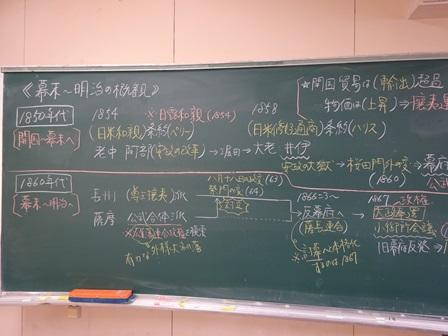 《幕末～明治の概観》
1850年代
開国→幕末へ
1854 ※日露和親(1854)
(日米和親)条約(ペリー)
1858
(日米修好通商)条約(ハリス)
老中 阿部(安政の改革)→退田→大老 井伊
安政の大獄→桜田門外の変→幕府
(1860)
公武
☆開国貿易は(輸出)超過
物価は(上昇)→
1860年代
幕末～明治へ
長州(尊王攘夷)派
薩摩 公武合体派
八月十八日政変(63)
禁門の変(64)
1866=3～
→反幕府へ
(薩長連合)
1867
大政奉還
小御所会議
旧幕府反発→